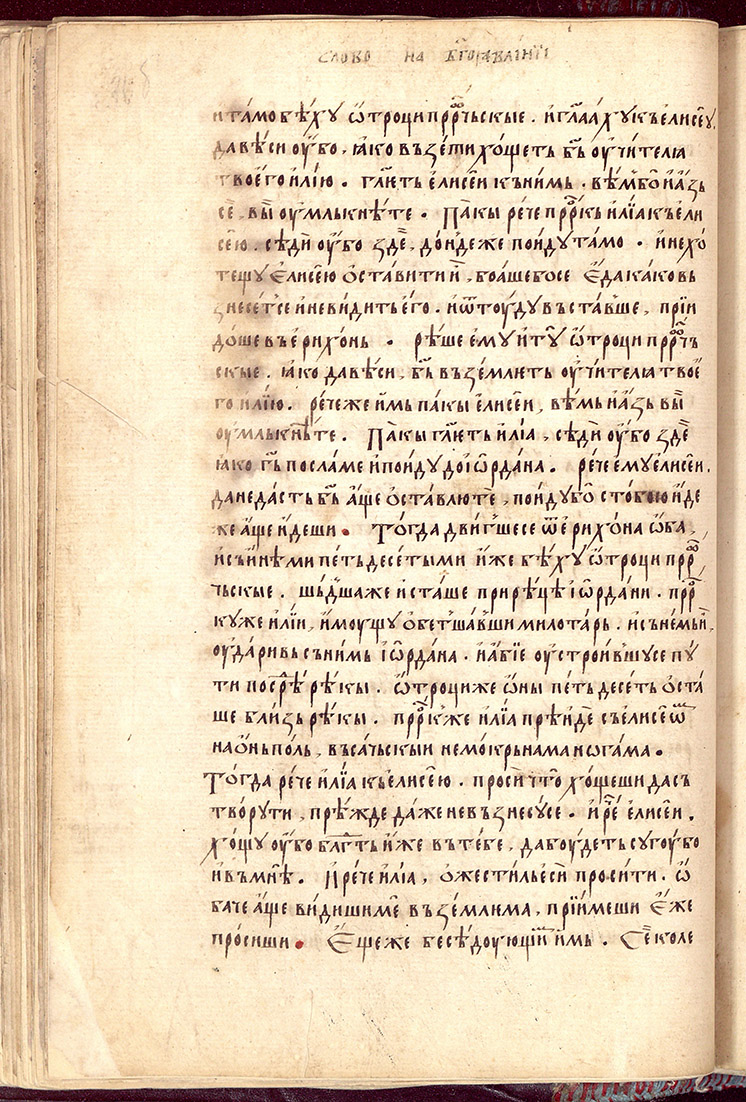 слово на бг҃оꙗвлѥнїи
и тамо бѣхꙋ ѿтроци прⷪ҇рчьскые . и гл҃аахꙋ къ елисею,
да вѣси оубо , ꙗко въз̾ети хощеть б҃ь оучителꙗ
твоего илїю . гл҃ѥть елисеи къ нимь . вѣмь бо и азь
се , вы оумлькнѣте . Пакы рече прⷪ҇ркь илїа къ ели
сею . сѣди оубо зде , дондеже поидꙋ тамо . и не хо
тещꙋ Елисею оставити и҆ , боꙗше бо се Еда како вь
знесетсе и не видить его . и ѿтоудꙋ въставше , прїи
доше въ ерихонь . рѣше емꙋ и тꙋ ѿтроци прⷪ҇рчъ
скые . ꙗко да вѣси , б҃ь въземлѥть оучителꙗ твое
го илїю . рече же имь пакы елисеи , вѣмь и азь вы
оумлькнѣте . Пакы гл҃ѥть илїа , сѣди оубо зде
ꙗко г҃ь посла ме и поидꙋ до іѡрдана . рече емꙋ елисеи .
да не дасть б҃ь аще оставлю те , поидꙋ бо с тобою иде
же аще идеши . Тогда двигшесе ѿ ерихона ѡба ,
и съ инѣми петьдесетыми иже бѣхꙋ ѿтроци прⷪ҇р
чьскые . шьдша же и сташе при рѣцѣ іѡрдани . прⷪ҇р
кꙋ же илїи , имоущꙋ обетшавши милотарь . и сънемь и ,
оударивь съ нимь іѡрдана . и абїе оустроившꙋсе пꙋ
ти посрⷣѣ рѣкы . ѿтроци же ѡны петьдесеть оста
ше близь рѣкы . прⷪ҇ркь же илїа прѣиде съ елисеѡⷨ
на онь поль , въсачьскыи немокрьнама ногама .
Тогда рече илїа кь елисею . проси что хощеши да съ
творꙋ ти , прѣжде даже не възнесꙋсе . и рⷱ҇е елисеи .
хощꙋ оубо блг҃ть иже в тебе , да боудеть сꙋгоубо
и въ мнѣ . И рече илїа , ожестиль еси просити . Ѡ
баче аще видиши ме въземлѥма , прїимеши Еже
просиши . Еще же бесѣдоующїиⷨ имь . Се коле